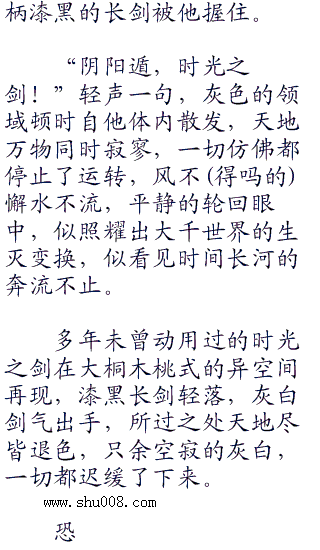 柄漆黑的长剑被他握住。
“阴阳遁，时光之
剑！”轻声一句，灰色的领
域顿时自他体内散发，天地
万物同时寂寥，一切仿佛都
停止了运转，风不(得吗的)
懈水不流，平静的轮回眼
中，似照耀出大千世界的生
灭变换，似看见时间长河的
奔流不止。
多年未曾动用过的时光
之剑在大桐木桃式的异空间
再现，漆黑长剑轻落，灰白
剑气出手，所过之处天地尽
皆退色，只余空寂的灰白，
一切都迟缓了下来。
www.shu008.com
恐